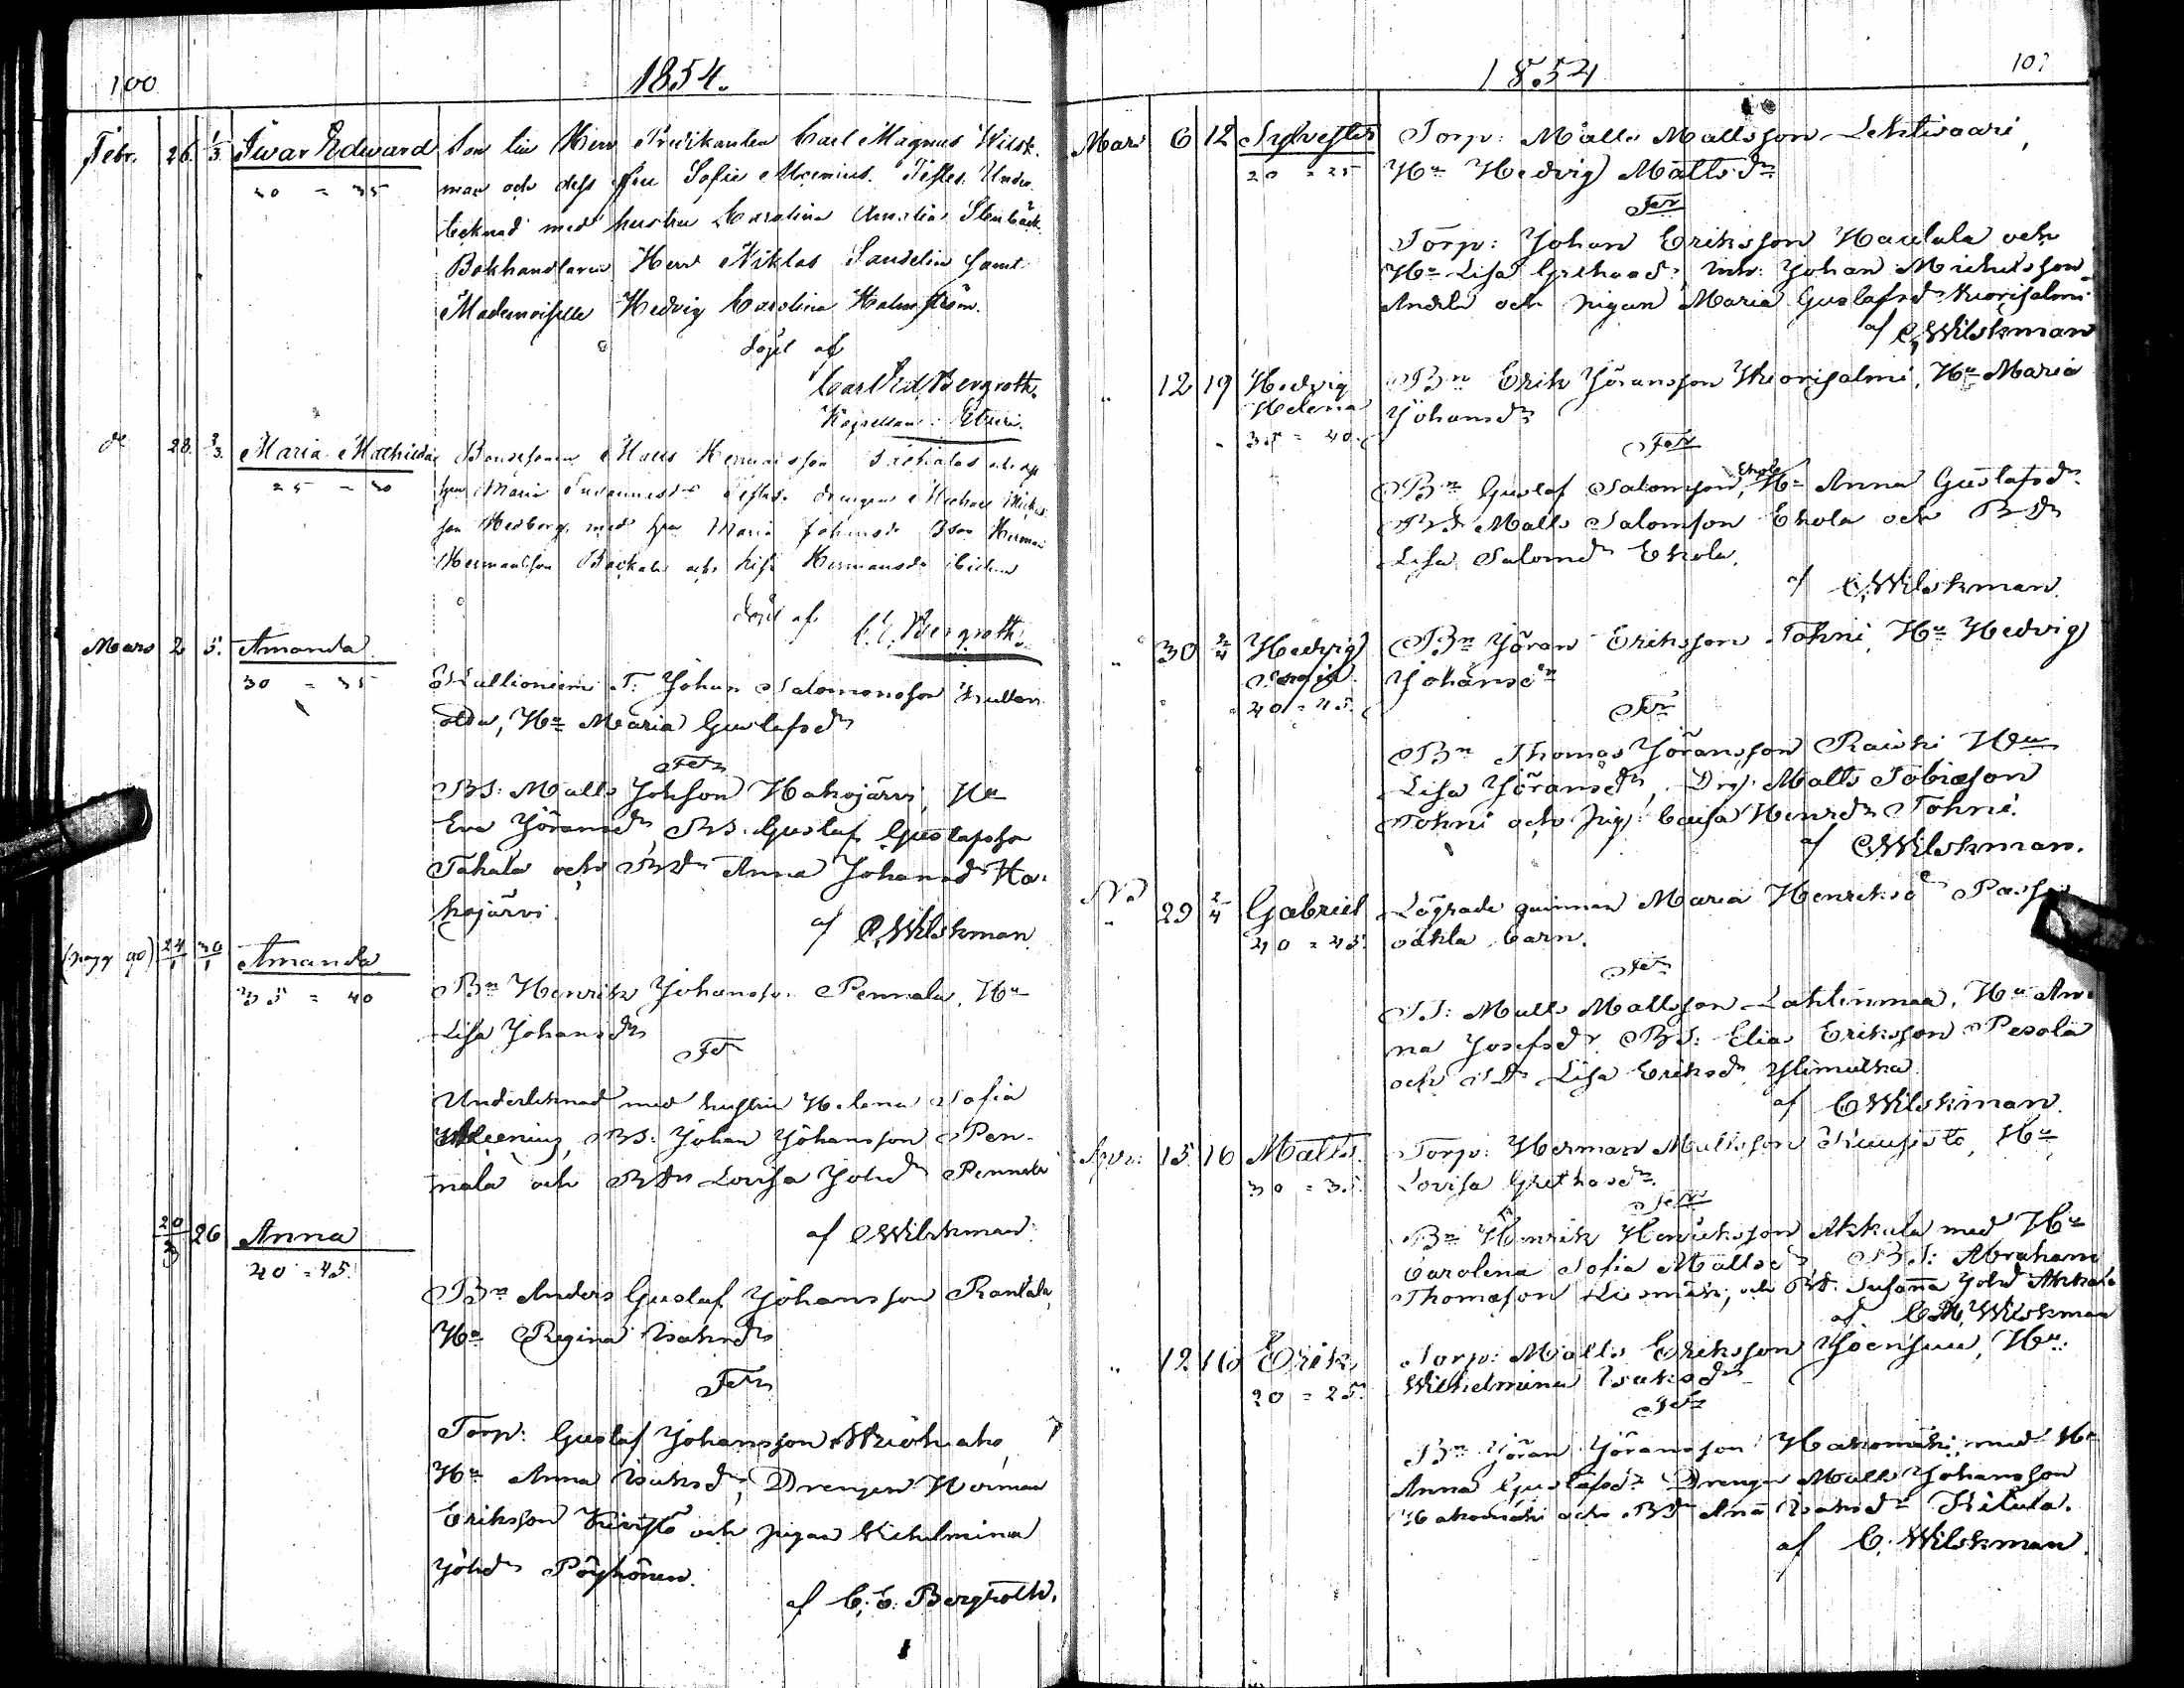 100
1854.
Febr. 26. 1/3. Iwar Edward Son till Herr Predikanten Carl Magnus Wilsk-
20 = 35 man och dess fru Sofie Moxenius. Testes Under-
tecknad med hustru Carolina Amalia Stenbäck.
Bokhandlaren Herr Niklas Sandelin samt
Mademoiselle Hedvig Carolina Holmström.
döpt af
Carl Ed. Bergroth.
Kapellan i Etseri.
dº 28. 3/3. Maria Mathilda Bondesonen Matts
25 - 30 hru Maria Testes: drengen Michael Michels
son Hedberg, med hru Maria Johansdr Bson Herman
Hermansson Backala och Lisa Hermansdr ibidem
döpt af C. E. Bergroth.
Mars 2 5. Amanda
30 = 35 Kallioniemi T: Johan Salomonsson
Hu Maria Gustafsdr
Fdr
BS: Matts Johsson Hakojärvi, Hu
Eva Jöransdr, BS. Gustaf Gustafsson
Takala och BDr Anna Johansdr Ha-
kojärvi.
af C. Wilskman.
24/1 30/1 Amanda
35 = 40 Bn Henrik Johansson Pennala, Hu
Lisa Johansdr
Fdr
Undertecknad med hustru Helena Sofia
BS: Johan Johansson Pen-
nala och BDn Lovisa Johdr Pennala
af C Wilskman.
20/3 26 Anna
40 = 45. Bn Anders Gustaf Johansson Rantala,
Hu Regina Isaksdr
Fdr
Torp: Gustaf Johansson
Hu Anna Isaksdr, Drengen Herman
Eriksson Kivistö och pigan Wilhelmina
Johdr Pöyhönen.
af C. E. Bergroth.
1854
Mars 6 12 Sylvester Torp: Matts Mattsson Lehtivaari,
20 = 25 Hu Hedvig Mattsdr
Fdr
Torp: Johan Eriksson Haulala och
Hu Lisa Grethasdr, Johan Michelsson
Andela och pigan Maria Gustafsdr Wuorisalmi
af C. Wilskman
" 12 19 Hedvig Bn Erik Jöransson Wuorisalmi, Hu Maria
Helena Johansdr
35 = 40.
Fdr
Bn Gustaf Salomsson Ekola, Hu Anna Gustafsdr
BS Matts Salomsson Ekola och BDr
Lisa Salomdr Ekola.
af C. Wilskman.
" 30 2/4 Hedvig Bn Jöran Eriksson Tohni, Hu Hedvig
Sofia Johansdr
40 = 45.
Fdr
Bn Thomas Jöransson Rauski Hu
Lisa Jöransdr, Drg. Matts Tobiasson
Tohni och pig: Caisa Henrdr Tohni.
af C Wilskman.
" 29 2/4 Gabriel Lägrade quinnan Maria Henriksdr
40 = 45. oäkta barn.
Fdr
TS: Matts Mattsson Lahtinmaa, Hu An-
na Josefsdr. BS: Elias Eriksson Pesola
och TDr Lisa Eriksdr Ylimulka.
af C Wilskman.
Apr: 15. 16 Matts. Torp: Herman Mattsson Kuusisto, Hu
30 = 35. Lovisa Grethasdr.
Fdr
Bn Henrik Henriksson Akkala med Hu
Carolina Sofia Mattsdr, BS: Abraham
Thomasson Liemäki, och BD. Susanna Johdr Akkala
af C. M. Wilskman
" 12. 16 Erik Torp: Matts Eriksson Joensuu, Hu:
20 = 25. Wilhelmina Isaksdr
Fdr
Bn Jöran Jöransson Hakomäki med Hu
Anna Gustafsdr Drengen Matts Johansson
Hakomäki och BDr Anna Isaksdr Kitula.
af C. Wilskman.